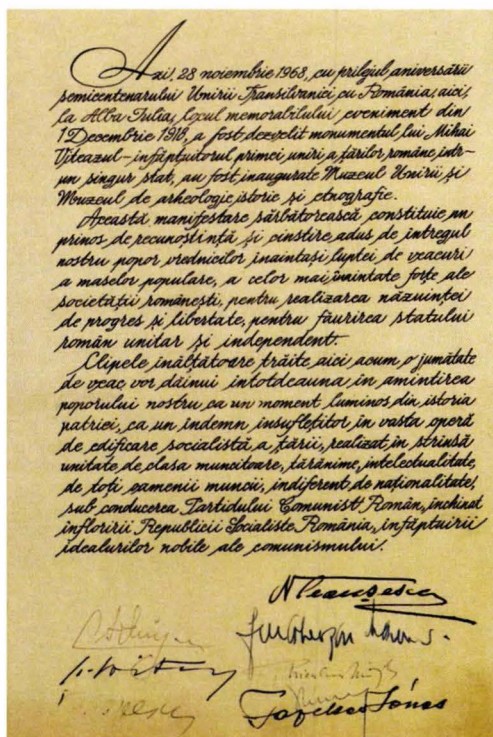 Azi, 28 noiembrie 1968, cu prilejul aniversării
semicentenarului Unirii Transilvaniei cu România, aici,
la Alba Iulia, locul memorabilului eveniment din
1 Decembrie 1918, a fost dezvelit monumentul lui Mihai
Viteazul - înfăptuitorul primei uniri a țărilor române, într-
un singur stat, au fost inaugurate Muzeul Unirii și
Muzeul de arheologie, istorie și etnografie.
Această manifestare sărbătorească constituie un
prinos de recunoștință și cinstire, adus de întregul
nostru popor vrednicilor înaintași luptei de veacuri
a maselor populare, a celor mai înaintate forțe ale
societății românești, pentru realizarea năzuinței
de progres și libertate, pentru făurirea statului
român unitar și independent.
Clipele înălțătoare trăite aici acum o jumătate
de veac, vor dăinui întotdeauna în amintirea
poporului nostru ca un moment luminos din istoria
patriei, ca un îndemn însuflețitor în vasta operă
de edificare socialistă a țării, realizat, în strînsă
unitate, de clasa muncitoare, țărănime, intelectualitate,
de toți oamenii muncii, indiferent de naționalitate,
sub conducerea Partidului Comunist Român, închinat
înfloririi Republicii Socialiste România, înfăptuirii
idealurilor nobile ale comunismului.
NCeaușescu
Fazekas János